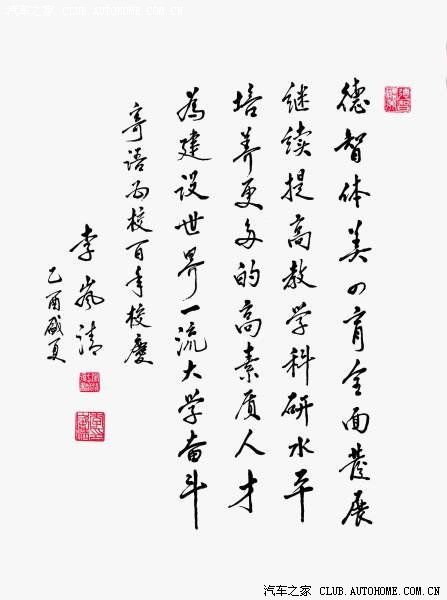 汽车之家 CLUB.AUTOHOME.COM.CN
德智体美四育全面發展
继续提高教学科研水平
培养更多的高素质人才
為建设世界一流大学奋斗
寄语母校百年校庆
李岚清
乙酉盛夏
汽车之家 CLUB.AUTOHOME.COM.CN